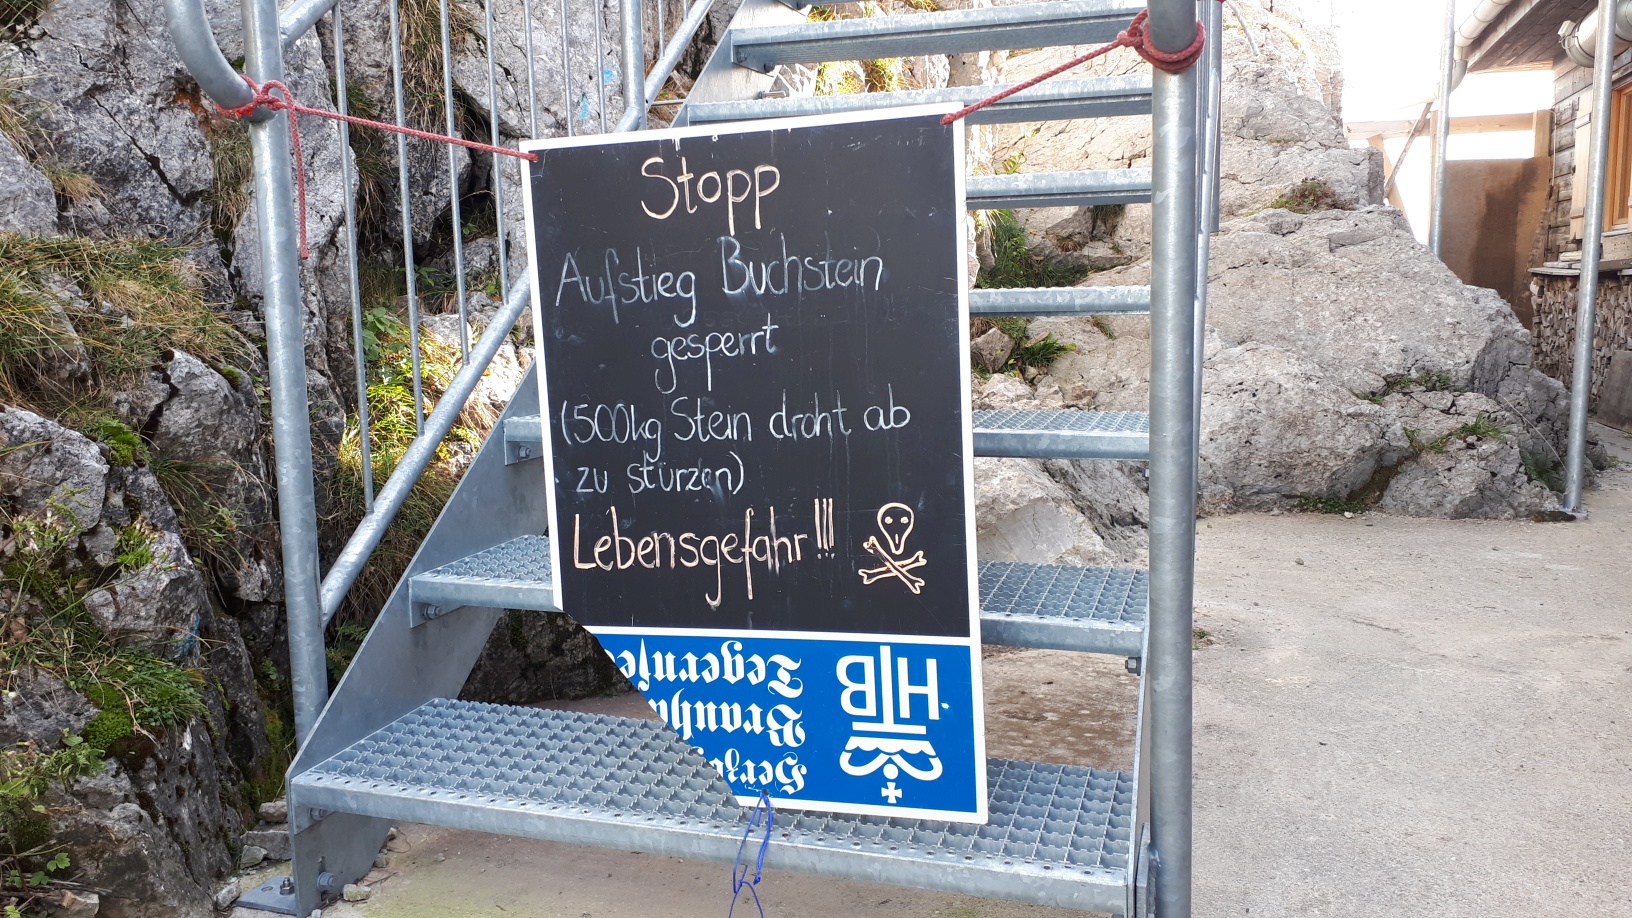 Stopp
Aufstieg Buchstein
gesperrt
(500kg Stein droht ab
zu stürzen)
Lebensgefahr!!!
HTB
Herzo
Brauha
Tegernse